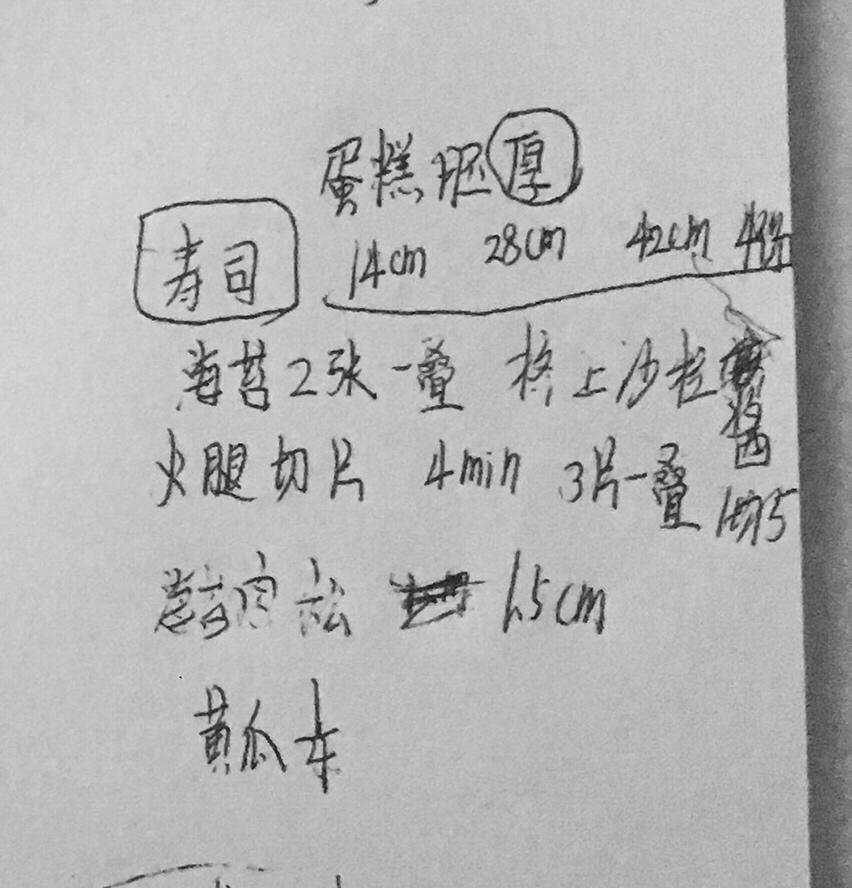 蛋糕胚厚
寿司 14cm 28cm 42cm
海苔2张一叠 挤上沙拉酱
火腿切片 4min 3片一叠 切5
肉松 1.5cm
黄瓜